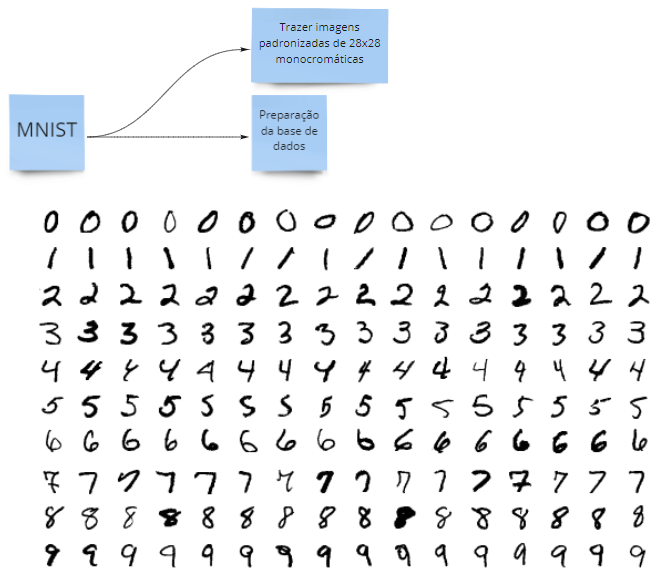 Trazer imagens
padronizadas de 28x28
monocromáticas
MNIST
Preparação
da base de
dados
0 0 0 0 0 0 0 0 0 0 0 0 0 0 0 0
1 1 1 1 1 1 1 1 1 1 1 1 1 1 1 1
2 2 2 2 2 2 2 2 2 2 2 2 2 2 2 2
3 3 3 3 3 3 3 3 3 3 3 3 3 3 3 3
4 4 4 4 4 4 4 4 4 4 4 4 4 4 4 4
5 5 5 5 5 5 5 5 5 5 5 5 5 5 5 5
6 6 6 6 6 6 6 6 6 6 6 6 6 6 6 6
7 7 7 7 7 7 7 7 7 7 7 7 7 7 7 7
8 8 8 8 8 8 8 8 8 8 8 8 8 8 8 8
9 9 9 9 9 9 9 9 9 9 9 9 9 9 9 9